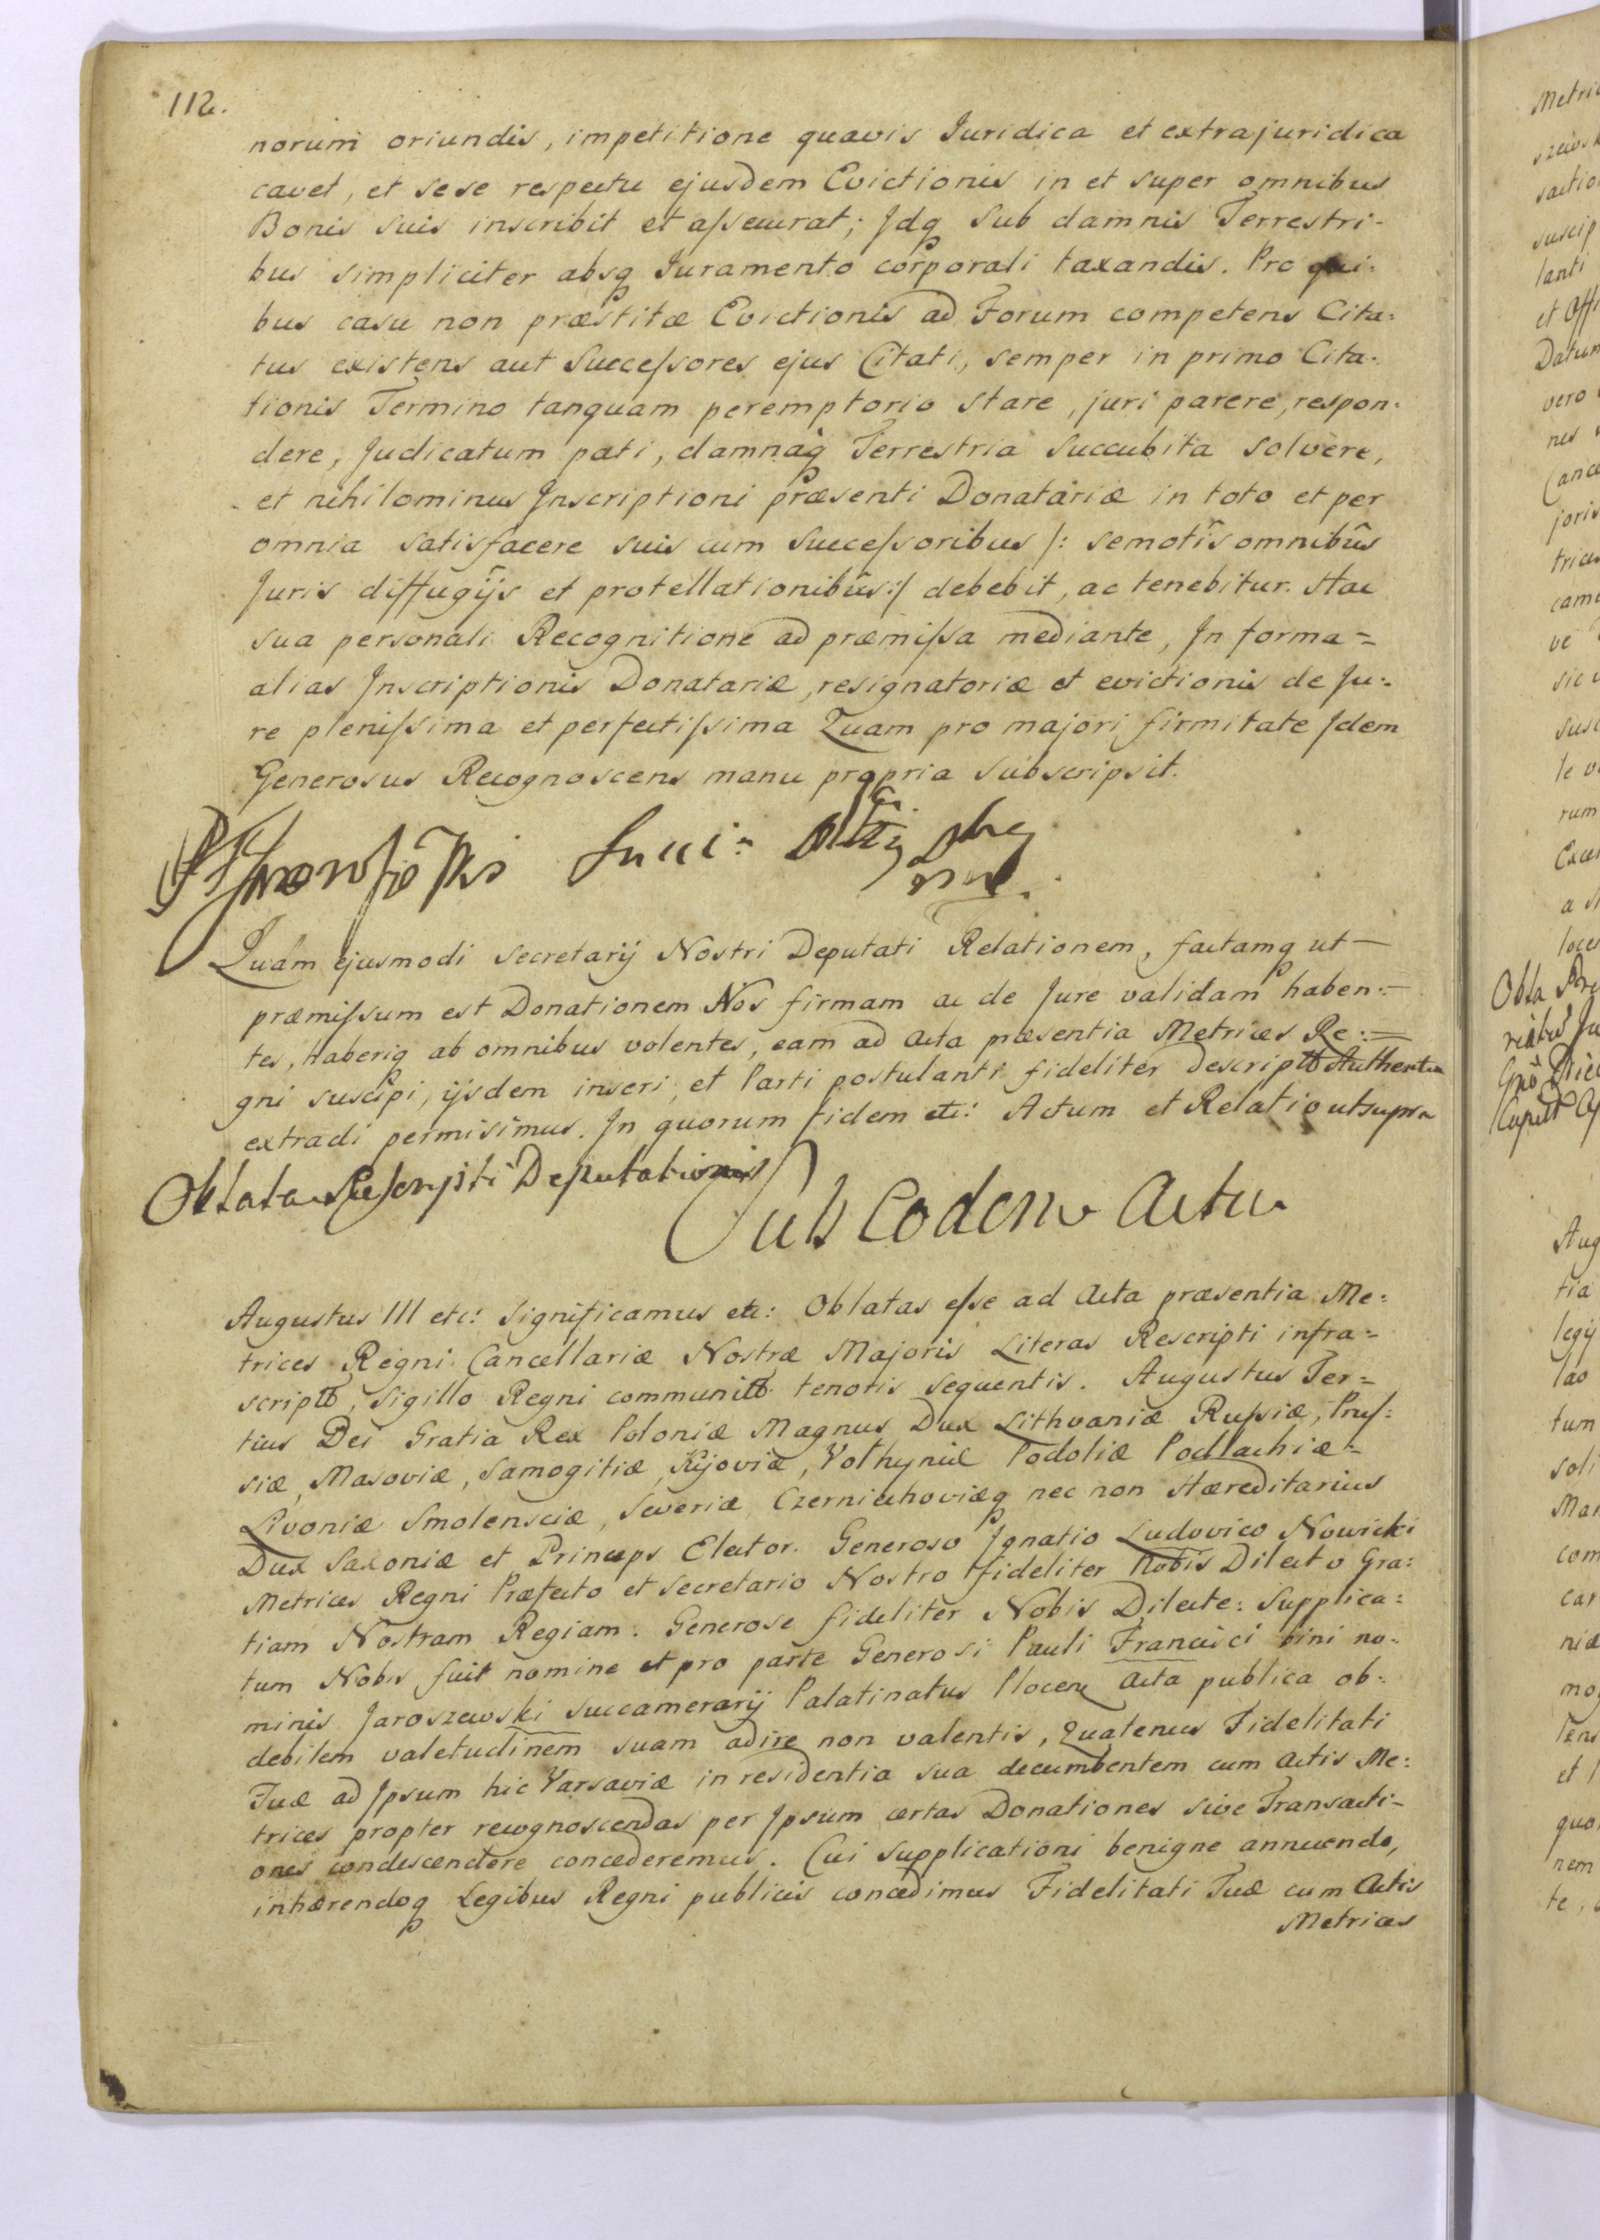 112.
norum oriundis, impetitione quavis Juridica et extrajuridica
cavet, et sese respectu ejusdem Evictionis in et super omnibus
Bonis suis inscribit et assecurat; Idq sub damnis Terrestri-
bus simpliciter absq Juramento corporali taxandis. Pro qui:
bus casu non præstitæ Evictionis ad Forum competens Cita:
tus existens aut Successores ejus Citati, semper in primo Cita:
tionis Termino tanquam peremptorio stare, juri parere, respon:
dere, Judicatum pati, damnaq Terrestria succubita solvere,
et nihilominus Inscriptioni præsenti Donatariæ in toto et per
omnia satisfacere suis cum Successoribus /: semotis omnibus
Juris diffugijs et protellationibus :/ debebit, ac tenebitur. Hac
sua personali Recognitione ad præmissa mediante, In forma =
alias Inscriptionis Donatariæ, resignatoriæ et evictionis de Ju:
re plenissima et perfectissima Quam pro majori firmitate Idem
Generosus Recognoscens manu propria subscripsit.
Quam ejusmodi Secretarij Nostri Deputati Relationem, factamq ut —
præmissum est Donationem Nos firmam ac de Jure validam haben: —
tes, haberiq ab omnibus volentes, eam ad Acta præsentia Metrices Re: =
gni suscipi, ijsdem inseri, et Parti postulanti fideliter Descriptō Authentice
extradi permisimus. In quorum fidem etc: Actum et Relatio ut supra
Oblata Rescripti Deputationis
Sub Eodem Actu
Augustus III etc: Significamus etc: Oblatas esse ad Acta præsentia Me:
trices Regni Cancellariæ Nostræ Majoris Literas Rescripti infra =
scripti, Sigillo Regni communit. tenoris sequentis. Augustus Ter =
tius Dei Gratia Rex Poloniæ Magnus Dux Lithvaniæ Russiæ, Prus:
siæ, Masoviæ, Samogitiæ, Kijoviæ, Volhyniæ Podoliæ Podlachiæ =
Livoniæ Smolensciæ, Severiæ Czerniechoviæq nec non Hæreditarius
Dux Saxoniæ et Princeps Elector. Generoso Ignatio Ludovico Nowicki
Metrices Regni Præfecto et Secretario Nostro fideliter Nobis Dilecto Gra:
tiam Nostram Regiam. Generose fideliter Nobis Dilecte: Supplica:
tum Nobis fuit nomine et pro parte Generosi Pauli Francisci bini no:
minis Jaroszewski Succamerarij Palatinatus Plocen Acta publica ob:
debilem valetudinem suam adire non valentis, Quatenus Fidelitati
Tuæ ad Ipsum hic Varsaviæ in residentia sua decumbentem cum Actis Me:
trices propter recognoscendas per Ipsum certas Donationes sive Transacti-
ones condescendere concederemus. Cui supplicationi benigne annuendo,
inhærendoq Legibus Regni publicis concedimus Fidelitati Tuæ cum Actis
Metrices